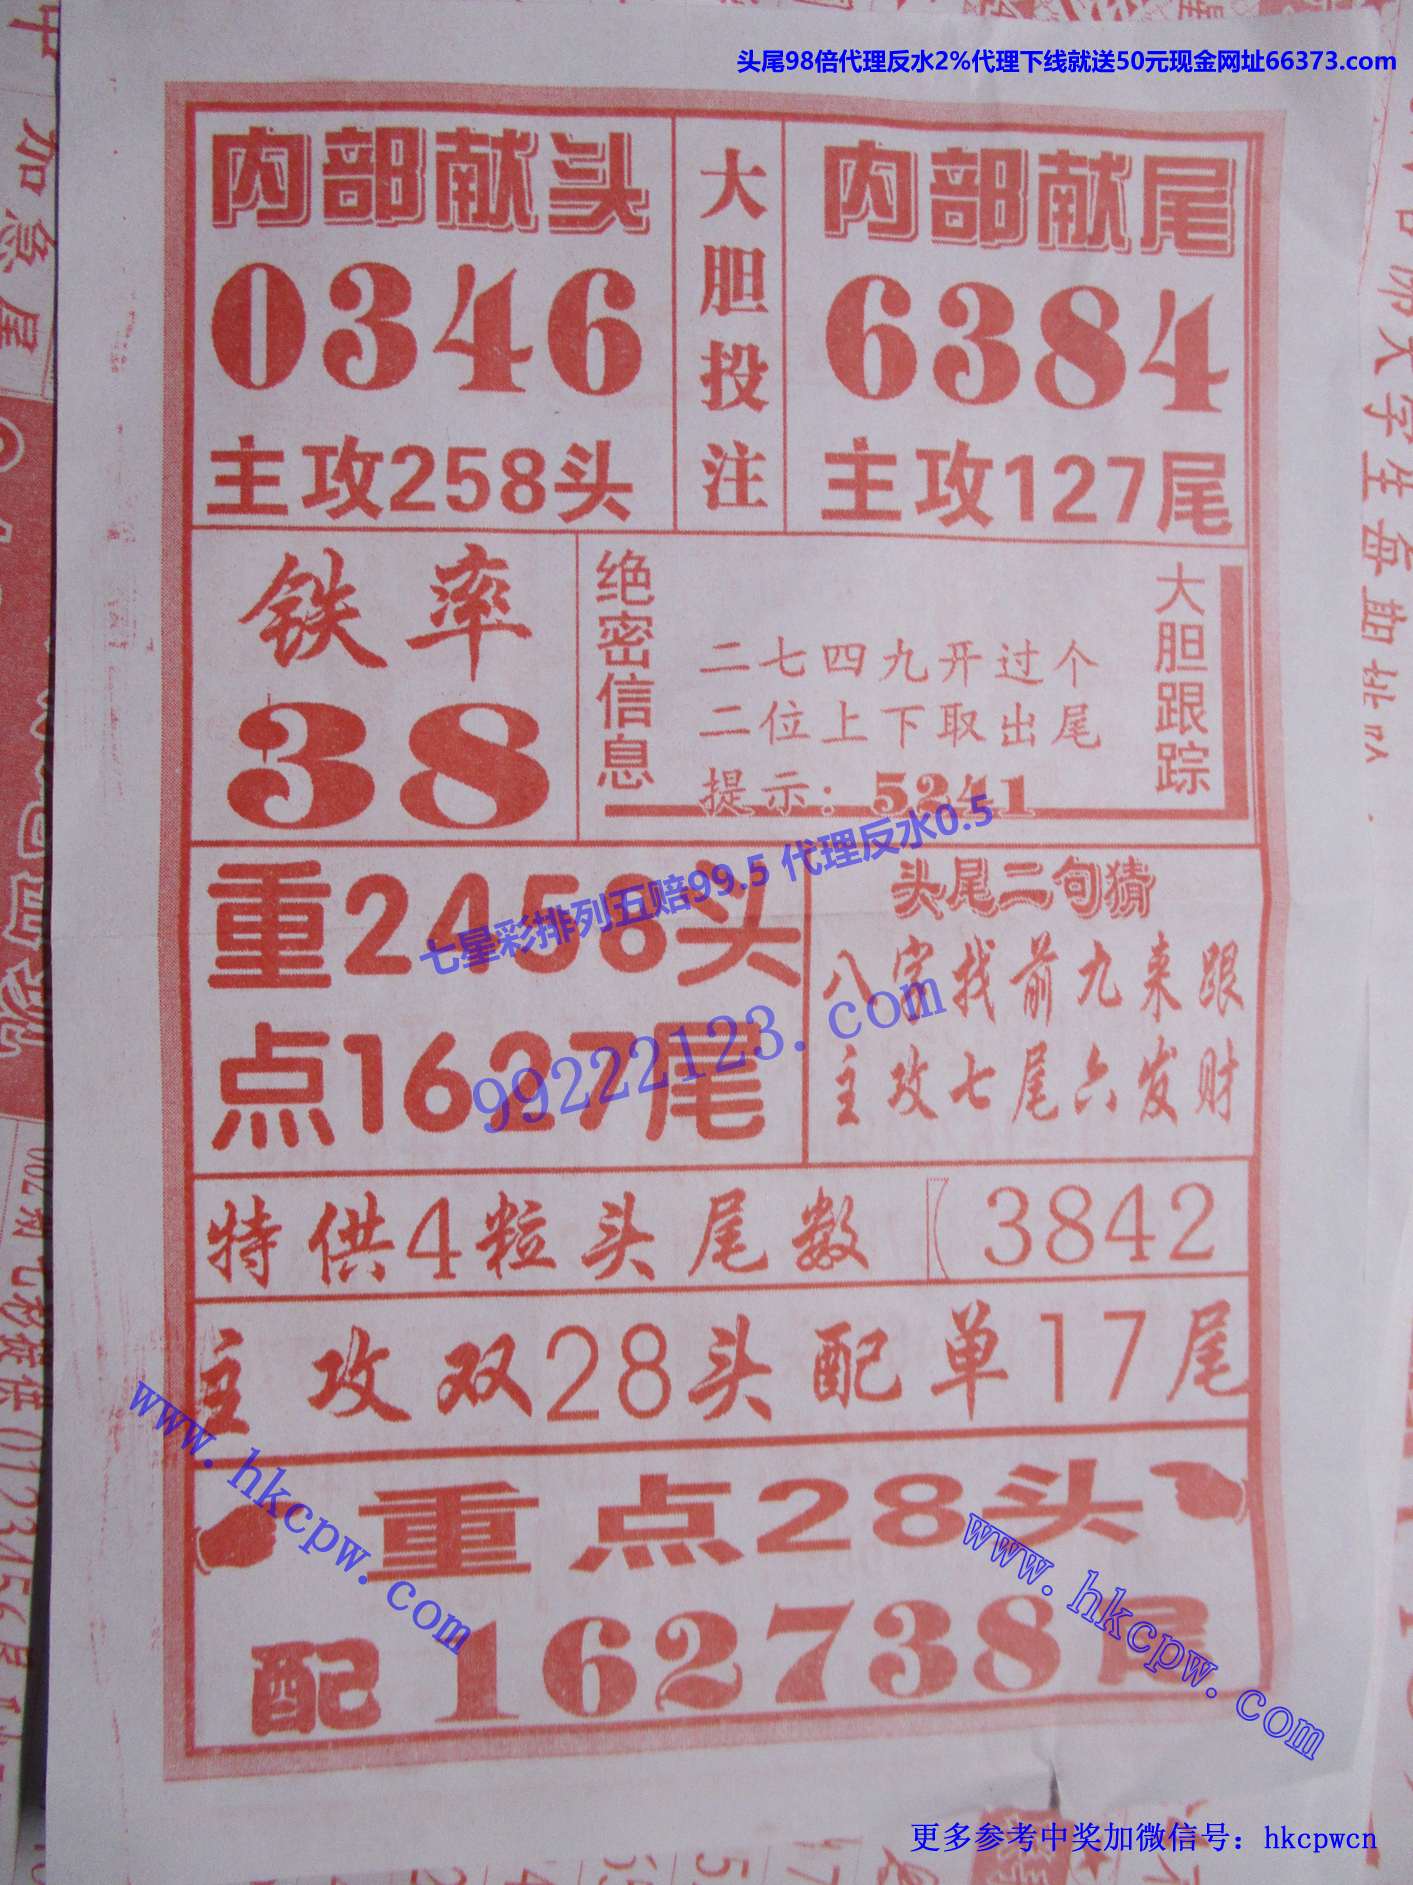 头尾98倍代理反水2%代理下线就送50元现金网址66373.com
内部献头
0346
主攻258头
大胆投注
内部献尾
6384
主攻127尾
铁率
38
绝密信息
二七四九开过个
二位上下取出尾
提示：5241
大胆跟踪
七星彩排列五赔99.5 代理反水0.5
重2458头
点1627尾
99222123.com
头尾二句猜
八字找前九来跟
主攻七尾六发财
特供4粒头尾数【3842
主攻双28头配单17尾
重点28头
配162738尾
www.hkcpw.com
www.hkcpw.com
更多参考中奖加微信号：hkcpwcn
中
加急尾